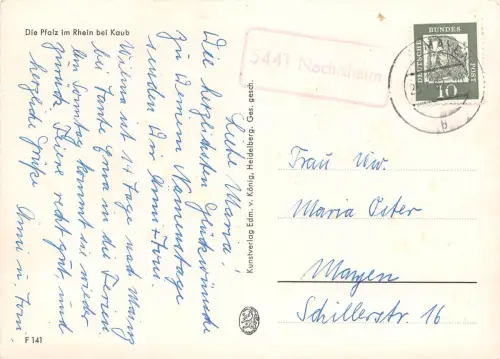 Die Pfalz im Rhein bei Kaub
Liebe Maria!
Die herzlichsten Glückwünsche
zu Deinem Namenstage
senden Dir Anni + Tom.
Wilma ist 14 Tage nach Mainz
bei Tante Erna in die Ferien.
Am Sonntag kommt sie wieder
zurück. Feiere recht gut, und
herzliche Grüße
Anni u. Tom
F 141
Kunstverlag Edm. v. König, Heidelberg. Ges. gesch.
5441 Nachtsheim
DEUTSCHE BUNDES POST
10
b
Frau Ww.
Maria Oster
Mayen
Schillerstr. 16